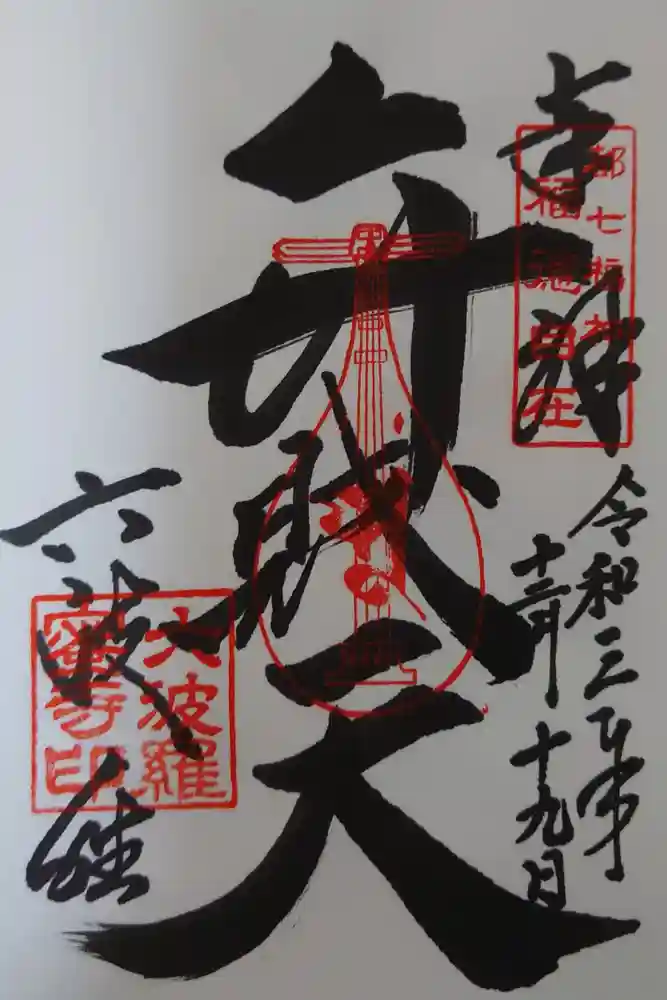 奉拝
都七福神
福徳自在
令和三年
十二月十九日
弁財天
六波羅
六波羅
蜜寺印